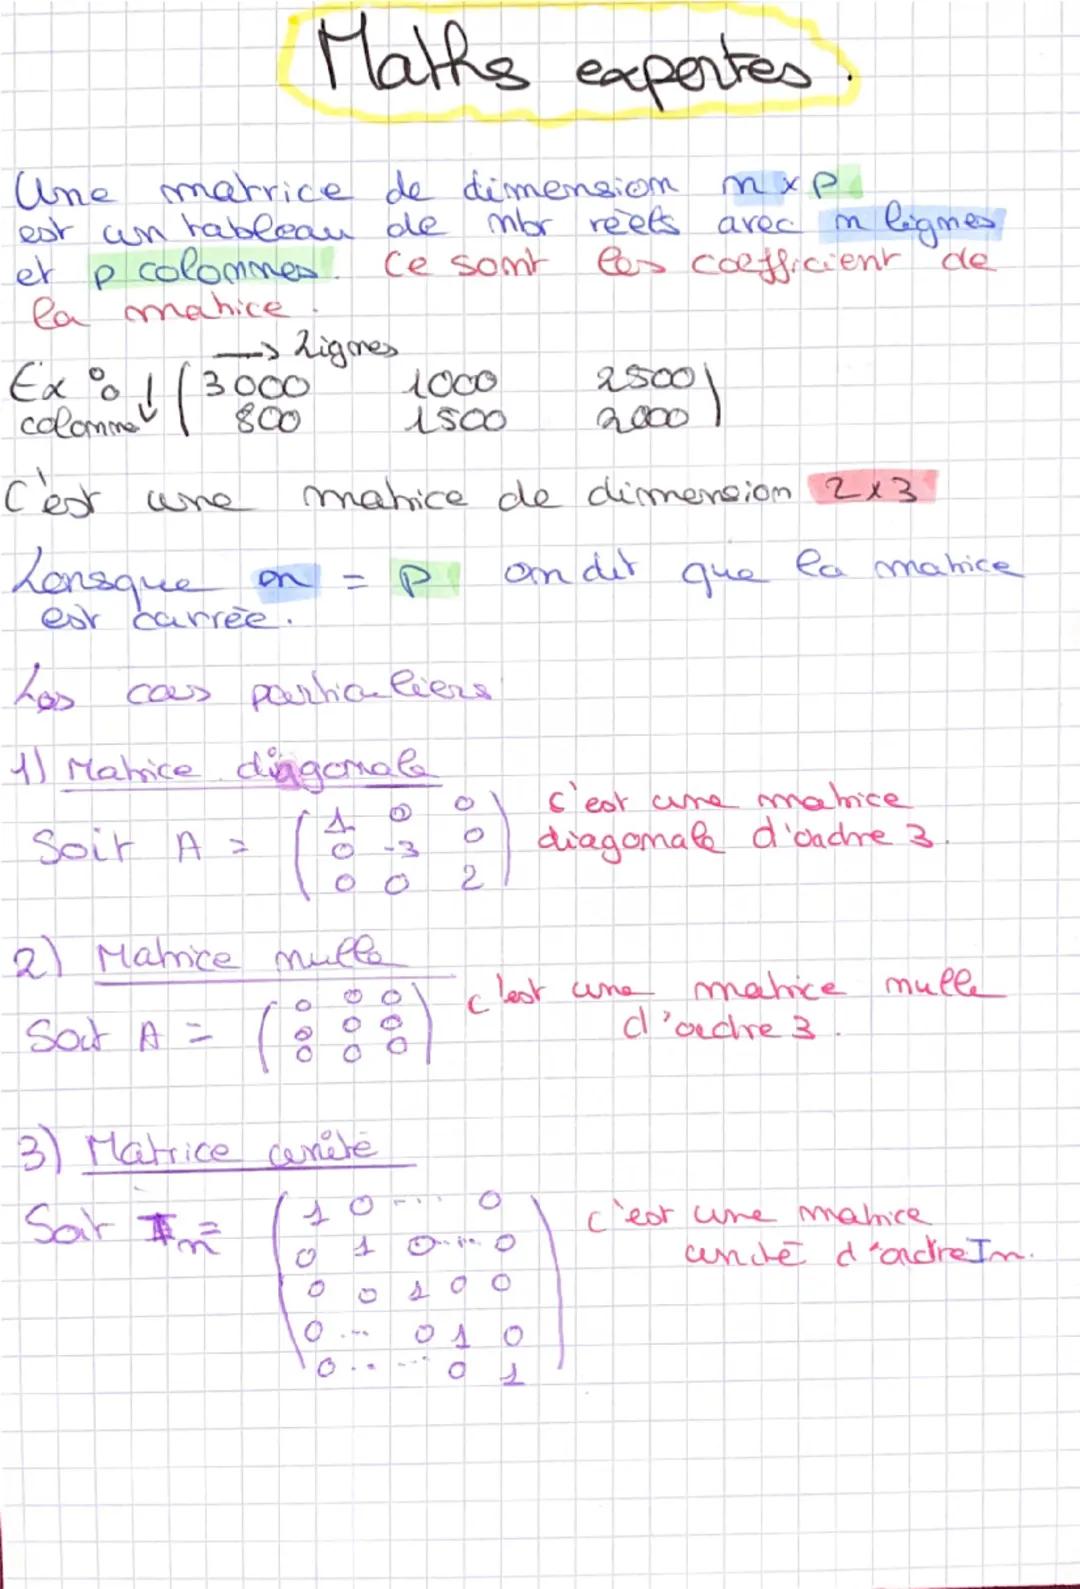 Maths expertes.
Une matrice de dimension n x p
est un tableau de nbr réels avec n lignes
et p colonnes. Ce sont les coefficient de
la matrice.
→ Lignes
Ex : ↓ ( 3000 1000 2500 )
colonne ( 800 1500 2000 )
C'est une matrice de dimension 2x3
Lorsque n = p on dit que la matrice
est carrée.
Les cas particuliers
1) Matrice diagonale
Soit A = ( 1 0 0
0 -3 0
0 0 2 )
c'est une matrice
diagonale d'ordre 3.
2) Matrice nulle
Soit A = ( 0 0 0
0 0 0
0 0 0 )
c'est une matrice nulle
d'ordre 3.
3) Matrice unité
Soit In = ( 1 0 ... 0
0 1 0 ... 0
0 0 1 0 0
0 ... 0 1 0
0 ... ... 0 1 )
c'est une matrice
unité d'ordre In.